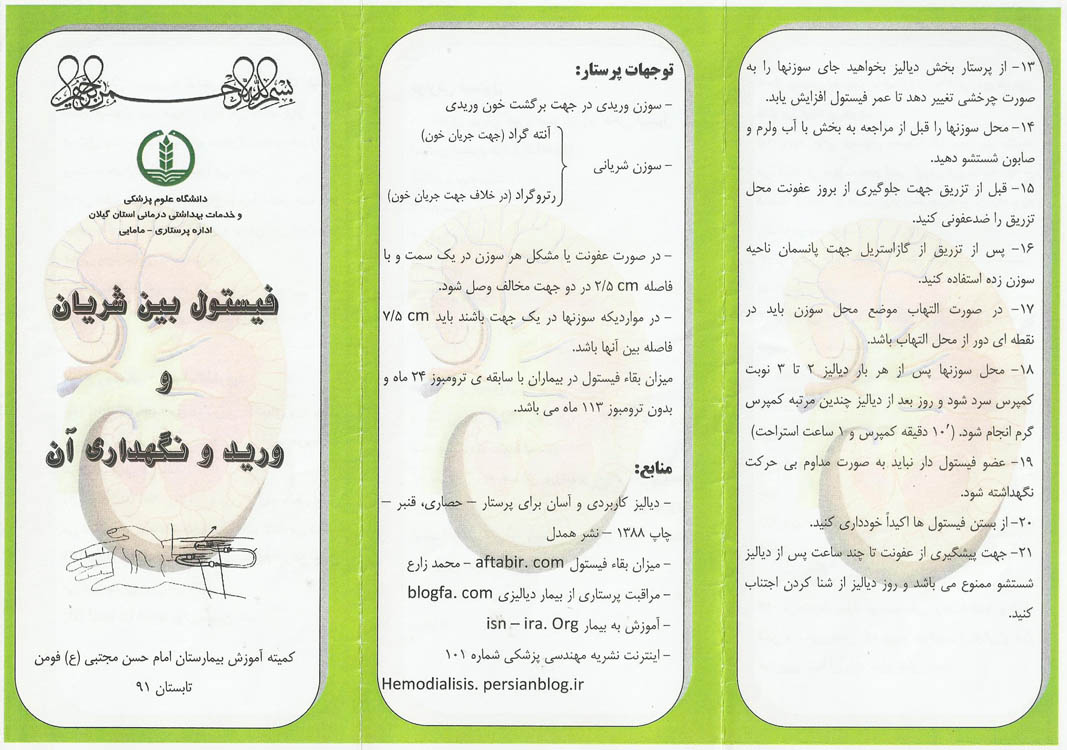 ۱۳- از پرستار بخش دیالیز بخواهید جای سوزنها را به
صورت چرخشی تغییر دهد تا عمر فیستول افزایش یابد.
۱۴- محل سوزنها را قبل از مراجعه به بخش با آب ولرم و
صابون شستشو دهید.
۱۵- قبل از تزریق جهت جلوگیری از بروز عفونت محل
تزریق را ضدعفونی کنید.
۱۶- پس از تزریق از گازاستریل جهت پانسمان ناحیه
سوزن زده استفاده کنید.
۱۷- در صورت التهاب موضع محل سوزن باید در
نقطه ای دور از محل التهاب باشد.
۱۸- محل سوزنها پس از هر بار دیالیز ۲ تا ۳ نوبت
کمپرس سرد شود و روز بعد از دیالیز چندین مرتبه کمپرس
گرم انجام شود. (′۱۰ دقیقه کمپرس و ۱ ساعت استراحت)
۱۹- عضو فیستول دار نباید به صورت مداوم بی حرکت
نگهداشته شود.
۲۰- از بستن فیستول ها اکیداً خودداری کنید.
۲۱- جهت پیشگیری از عفونت تا چند ساعت پس از دیالیز
شستشو ممنوع می باشد و روز دیالیز از شنا کردن اجتناب
کنید.
توجهات پرستار:
- سوزن وریدی در جهت برگشت خون وریدی
آنته گراد (جهت جریان خون)
- سوزن شریانی
رتروگراد (در خلاف جهت جریان خون)
- در صورت عفونت یا مشکل هر سوزن در یک سمت و با
فاصله ۲/۵ cm در دو جهت مخالف وصل شود.
- در مواردیکه سوزنها در یک جهت باشند باید ۷/۵ cm
فاصله بین آنها باشد.
میزان بقاء فیستول در بیماران با سابقه ی ترومبوز ۲۴ ماه و
بدون ترومبوز ۱۱۳ ماه می باشد.
منابع:
- دیالیز کاربردی و آسان برای پرستار – حصاری، قنبر –
چاپ ۱۳۸۸ – نشر همدل
- میزان بقاء فیستول aftabir. com – محمد زارع
- مراقبت پرستاری از بیمار دیالیزی blogfa. com
- آموزش به بیمار isn – ira. Org
- اینترنت نشریه مهندسی پزشکی شماره ۱۰۱
Hemodialisis. persianblog.ir
بسم الله الرحمن الرحیم
دانشگاه علوم پزشکی
و خدمات بهداشتی درمانی استان گیلان
اداره پرستاری - مامایی
فیستول بین شریان
و
ورید و نگهداری آن
کمیته آموزش بیمارستان امام حسن مجتبی (ع) فومن
تابستان ۹۱